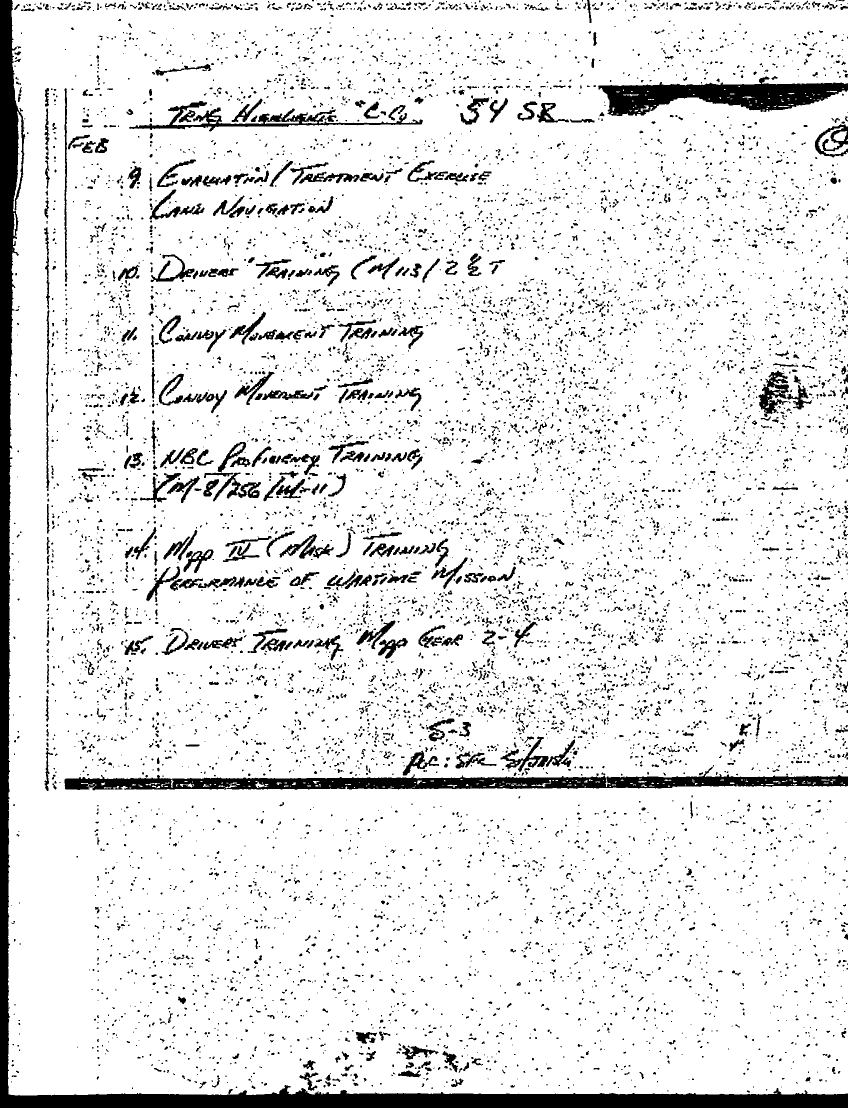 TRNG HIGHLIGHTS "C-Co" 54 SB
FEB
9. EVALUATION/TREATMENT EXERCISE
LAND NAVIGATION
10. DRIVERS TRAINING (M113/2 ½ T
11. CONVOY MOVEMENT TRAINING
12. CONVOY MOVEMENT TRAINING
13. NBC PROFICIENCY TRAINING
(M-8/256/M-11)
14. MOPP IV (MASK) TRAINING
PERFORMANCE OF WARTIME MISSION
15. DRIVERS TRAINING MOPP GEAR 2-4
S-3
POC: SFC